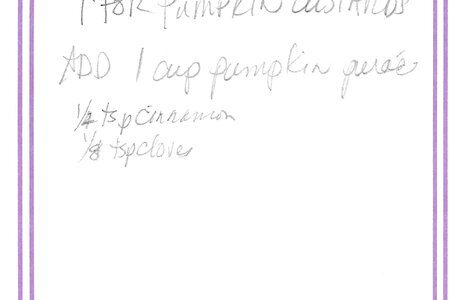 FOR PUMPKIN CUSTARDS
ADD 1 cup pumpkin purée
1/4 tsp cinnamon
1/8 tsp cloves